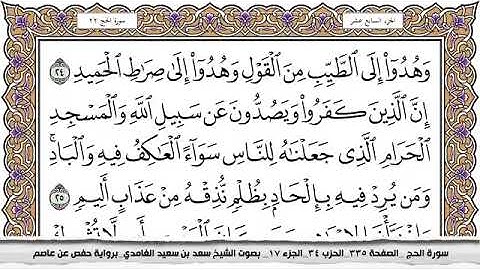 الجزء السابع عشر
سورة الحج ٢٢
وَهُدُوٓا۟ إِلَى ٱلطَّيِّبِ مِنَ ٱلْقَوْلِ وَهُدُوٓا۟ إِلَىٰ صِرَٰطِ ٱلْحَمِيدِ ٢٤
إِنَّ ٱلَّذِينَ كَفَرُوا۟ وَيَصُدُّونَ عَن سَبِيلِ ٱللَّهِ وَٱلْمَسْجِدِ
ٱلْحَرَامِ ٱلَّذِى جَعَلْنَٰهُ لِلنَّاسِ سَوَآءً ٱلْعَٰكِفُ فِيهِ وَٱلْبَادِ ۚ
وَمَن يُرِدْ فِيهِ بِإِلْحَادٍۭ بِظُلْمٍ نُّذِقْهُ مِنْ عَذَابٍ أَلِيمٍ ٢٥
سورة الحج_ الصفحة ٣٣٥_ الحزب ٣٤_ الجزء ١٧_ بصوت الشيخ سعد بن سعيد الغامدي_ برواية حفص عن عاصم